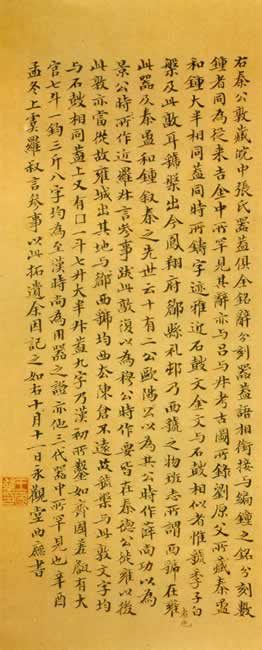 右秦公敦藏沇中張氏器蓋俱全銘辭分刻器蓋語相銜接與編鐘之銘分刻數
鍾者同為從來吉金中所罕見其辭亦与吕与叔考古圖所錄劉原父所藏秦盄
和鍾大半相同蓋同時所鑄字迹雅近石鼓文金文与石鼓相似者惟虢季子白
槃及此敦耳虢槃出今鳳翔府郿縣礼邨乃西虢之物班志所謂西虢在雍者也
此器及秦盄和鍾敘秦之先世云十有二公歐陽公以為共公時作薛尚功以為
景公時所作近羅叔言參事跋此敦復以為穆公時作要皆在秦德公徙雍以後
此敦亦當從故雍城出其地与郿西鄰均西去陳倉不遠故虢槃与此敦文字均
与石鼓相同蓋上又有囗一斗七升大半升蓋九字乃漢初所鑿如齊國差有大
官七斗一鈞三斤八字均為至漢時尚為用器之證亦他三代器中所罕見也辛酉
孟冬上虞羅叔言參事以此拓遺余因記之如右十月十一日永觀堂西廡書